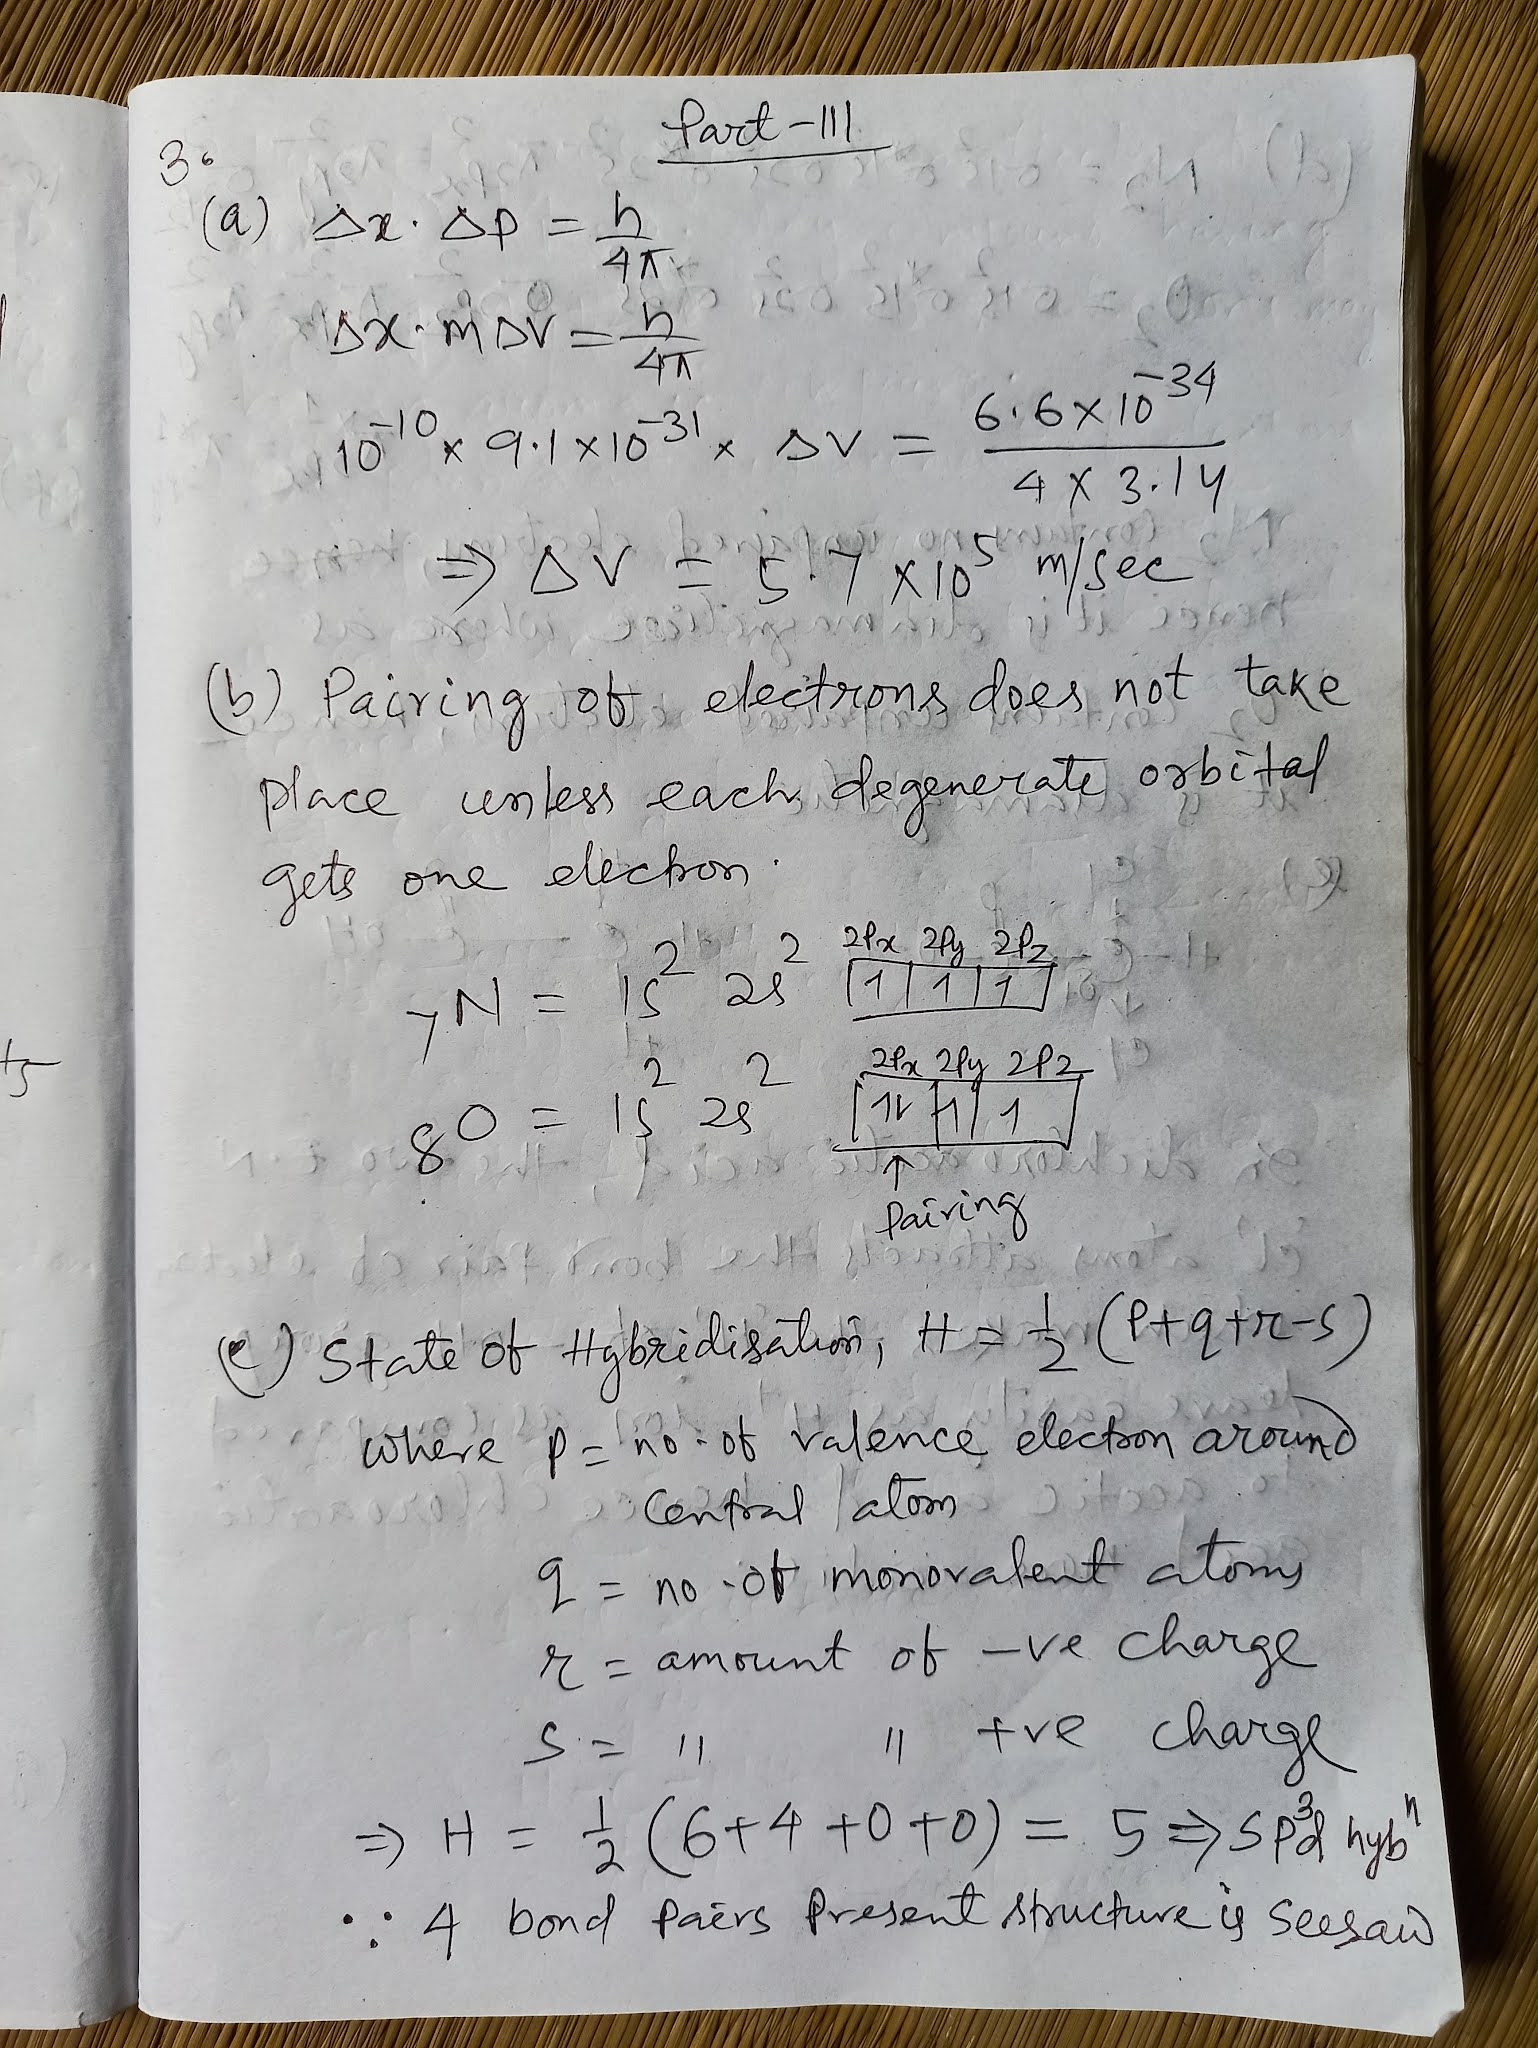 Part-III
3.
(a) Δx. Δp = h/4π
Δx. mΔV = h/4π
10^-10 x 9.1x10^-31 x ΔV = 6.6x10^-34 / 4 x 3.14
=> ΔV = 5.7 x10^5 m/sec
(b) Pairing of electrons does not take
place unless each degenerate orbital
gets one electron.
2Px 2Py 2Pz
7N = 1s² 2s² 1 1 1
2Px 2Py 2Pz
8O = 1s² 2s² 1↓ 1 1
↑
Pairing
(c) State of Hybridisation, H = 1/2 (P+q+r-s)
where P = no. of valence electron around
central atom
q = no. of monovalent atoms
r = amount of -ve charge
s = " " +ve charge
=> H = 1/2 (6+4+0+0) = 5 => sp³d hybⁿ
∵ 4 bond pairs present structure is seesaw